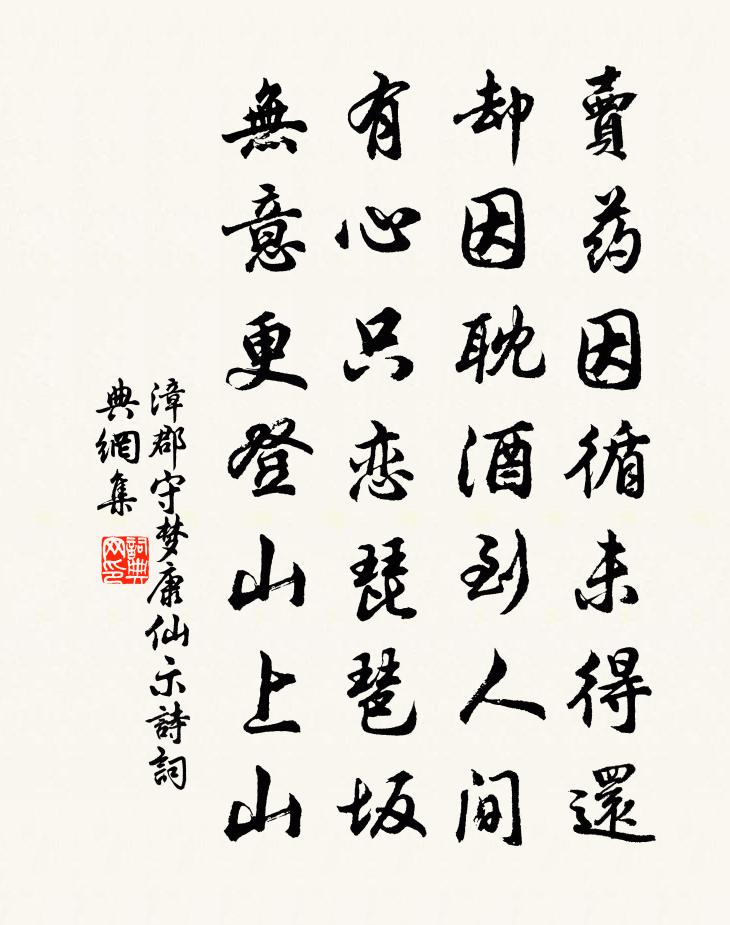 賣药因循未得還
却因耽酒到人间
有心只恋琵琶坂
無意更登山上山
漳郡守梦康仙示詩詞
典網集
詞典
网印